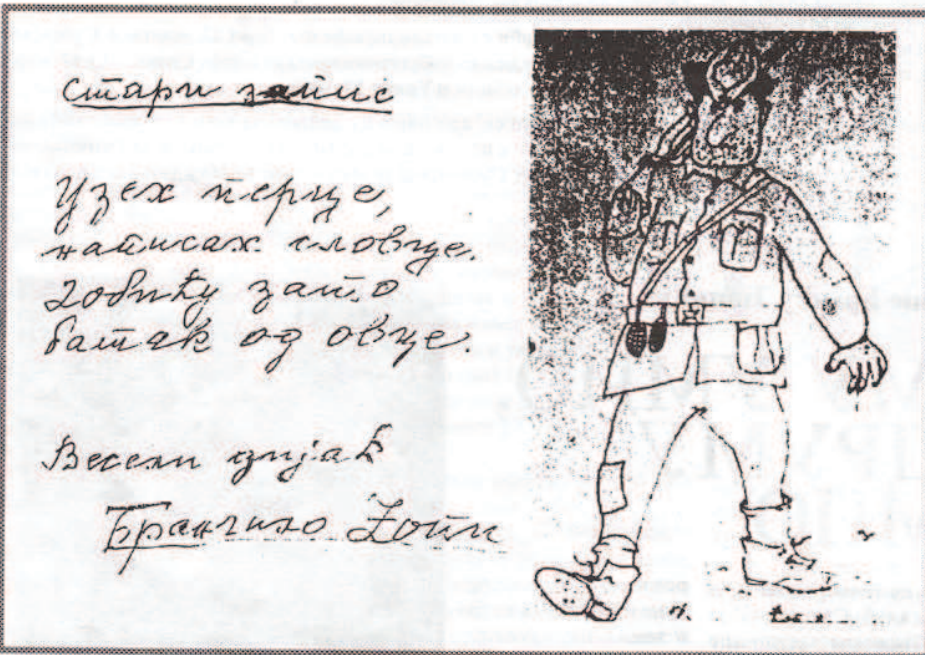 Стари запис
Узех перце,
написах словце.
добићу зато
батак од овце
Весели дијак
Бранчило